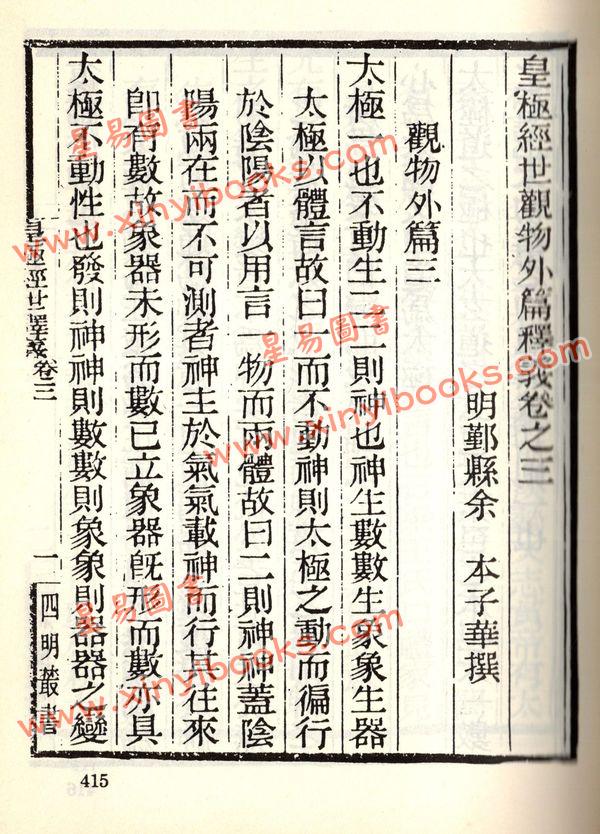 皇極經世觀物外篇釋義卷之三
明鄞縣余 本子華撰
觀物外篇三
太極一也不動生二二則神也神生數數生象象生器
太極以體言故曰一而不動神則太極之動而徧行
於陰陽者以用言一物而兩體故曰二則神神蓋陰
陽兩在而不可測者神主於氣氣載神而行其往來
卽有數故象器未形而數已立象器旣形而數亦具
太極不動性也發則神神則數數則象象則器器之變
皇極經世釋義卷三
一
四明叢書
415
星易圖書
www.xinyibooks.com
星易圖書
www.xinyibooks.com
星易圖書
www.xinyibooks.com